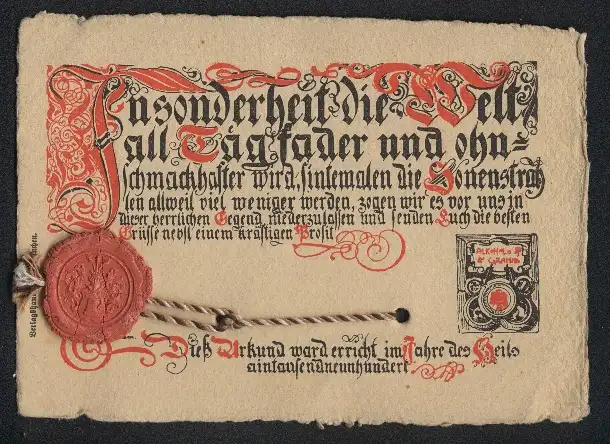 Insonderheit die Welt
all Täg fader und ohn=
schmackhafter wird, sintemalen die Sonenstrah
len allweil viel weniger werden, zogen wir es vor uns in
dieser herrlichen Gegend niederzulassen und senden Euch die besten
Grüsse nebst einem kräftigen Prosit
Dieß Urkund ward erricht im Jahre des Heils
aintausendneunhundert